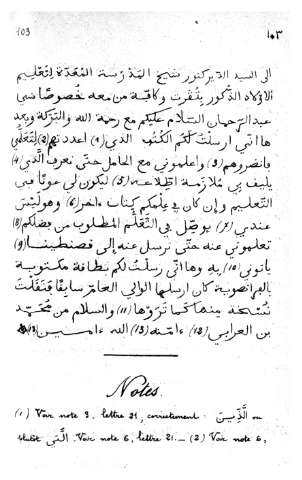 103 ١٠٣
الى السيد الديركتور شيخ المدرسة المُعَدة لتعليم
الاولاد الذكور بتقرت وكافة من معه خصوصا سي
عبد الرحمان السلام عليكم مع رحمة الله والبركة وبعد
ها انى ارسلت لكم الكتب الذي (1) اعددتهم (2) لتعلي
بانضروهم (3) واعلموني مع الحامل حتى نعرف الذي (4)
يليق بي ملازمة اطلاعه (5) ليكون لي عونا في
التعليم وان كان في علمكم كتاب ءاخر (6) وهو ليس
عندي (7) يوصل في التعلم المطلوب من فضلكم (8)
تعلموني عنه حتى نرسل عنه الى قصنطينا (9)
ياتوني (10) به وها انى رسلت لكم بطاقة مكتوبة
بالفرانصوية كان ارسلها الوالي العام سابقا فنقلت
نسخة منها كما تروها (11) والسلام من محمد
بن العرابي (12) ءامنه (13) الله ءامين (14)
Notes.
(1) Voir note 3, lettre 21, correctement: الذين ou
plutôt التى. Voir note 6, lettre 21. — (2) Voir note 6,